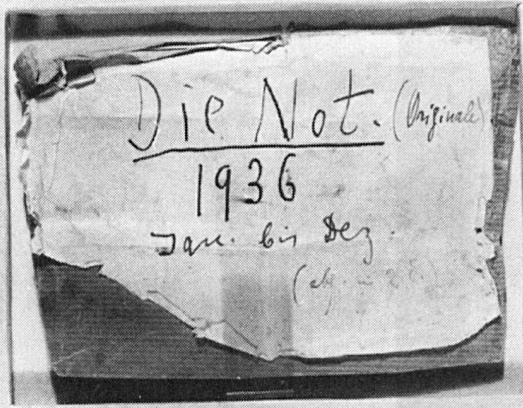 Die Not. (Originale)
1936
Jan. bis Dez.